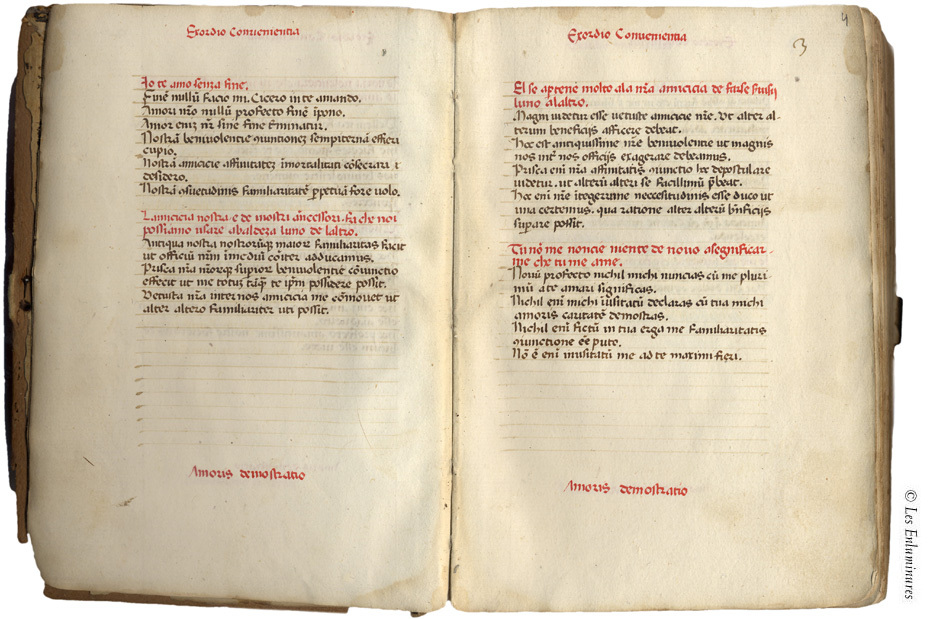 Exordio Conuenientia
Io te amo senza fine.
Finē nullū facio mi. Cicero in te amando.
Amori nr̄o nullū profecto finē īpono.
Amor enīz nr̄ sine fine t̄minatur.
Nostrā beniuolentie iunctionez sempiternā effici
cupio.
Nostrā amicicie affinitatez īmortalitati cōsecrari
desidero.
Nostrā asuetudinis familiaritatē ppetuā fore uolo.
Lamicicia nostra e de inostri ancessori. fa che noi
possiamo usare abaldeza luno de laltro.
Antiqua nostra nostrorūq maior familiaritas facit
ut officiū nr̄m īmediū cōiter adducamus.
Prisca nr̄a nr̄orqz supior beniuolentie cōiunctio
effecit ut me totus tāq te ipm̄ possidere possit.
Vetusta nr̄a inter nos amicicia me cōmouet ut
alter altero familiariter uti possit.
Amoris demostratio
4
Exordio Conuenientia
3
El se aptene molto ala nr̄a amicicia de farse
luno alaltro.
Magni uidetur esse uetuste amicicie nr̄e. Vt alter al-
terum beneficijs afficere debeat.
Hoc est antiquissime nr̄e beniuolentie ut magnis
nos int̄ nos officijs exagerare debeamus.
Prisca enī nr̄a affinitatis iunctio hec depostulare
uidetur. ut alterū alter se facillimū p̄beat.
Hoc enī nr̄e itegerrime neccesitudinis esse duco ut
una certemus. qua ratione alter alterū bn̄ficijs
supare possit.
Tu nō me noncie niente de nouo asegnificar-
me che tu me ame.
Nouū profecto nichil michi nuncias cū me pluri
mū a te amari significas.
Nichil enī michi iusitatū declaras cū tua michi
amoris caritatē demostras.
Nichil enī fictū in tua erga me familiaritatis
iunctione eē̄ puto.
Nō ē enī inusitatū me ad te maximi fieri.
Amoris demostratio
© Les Enluminures